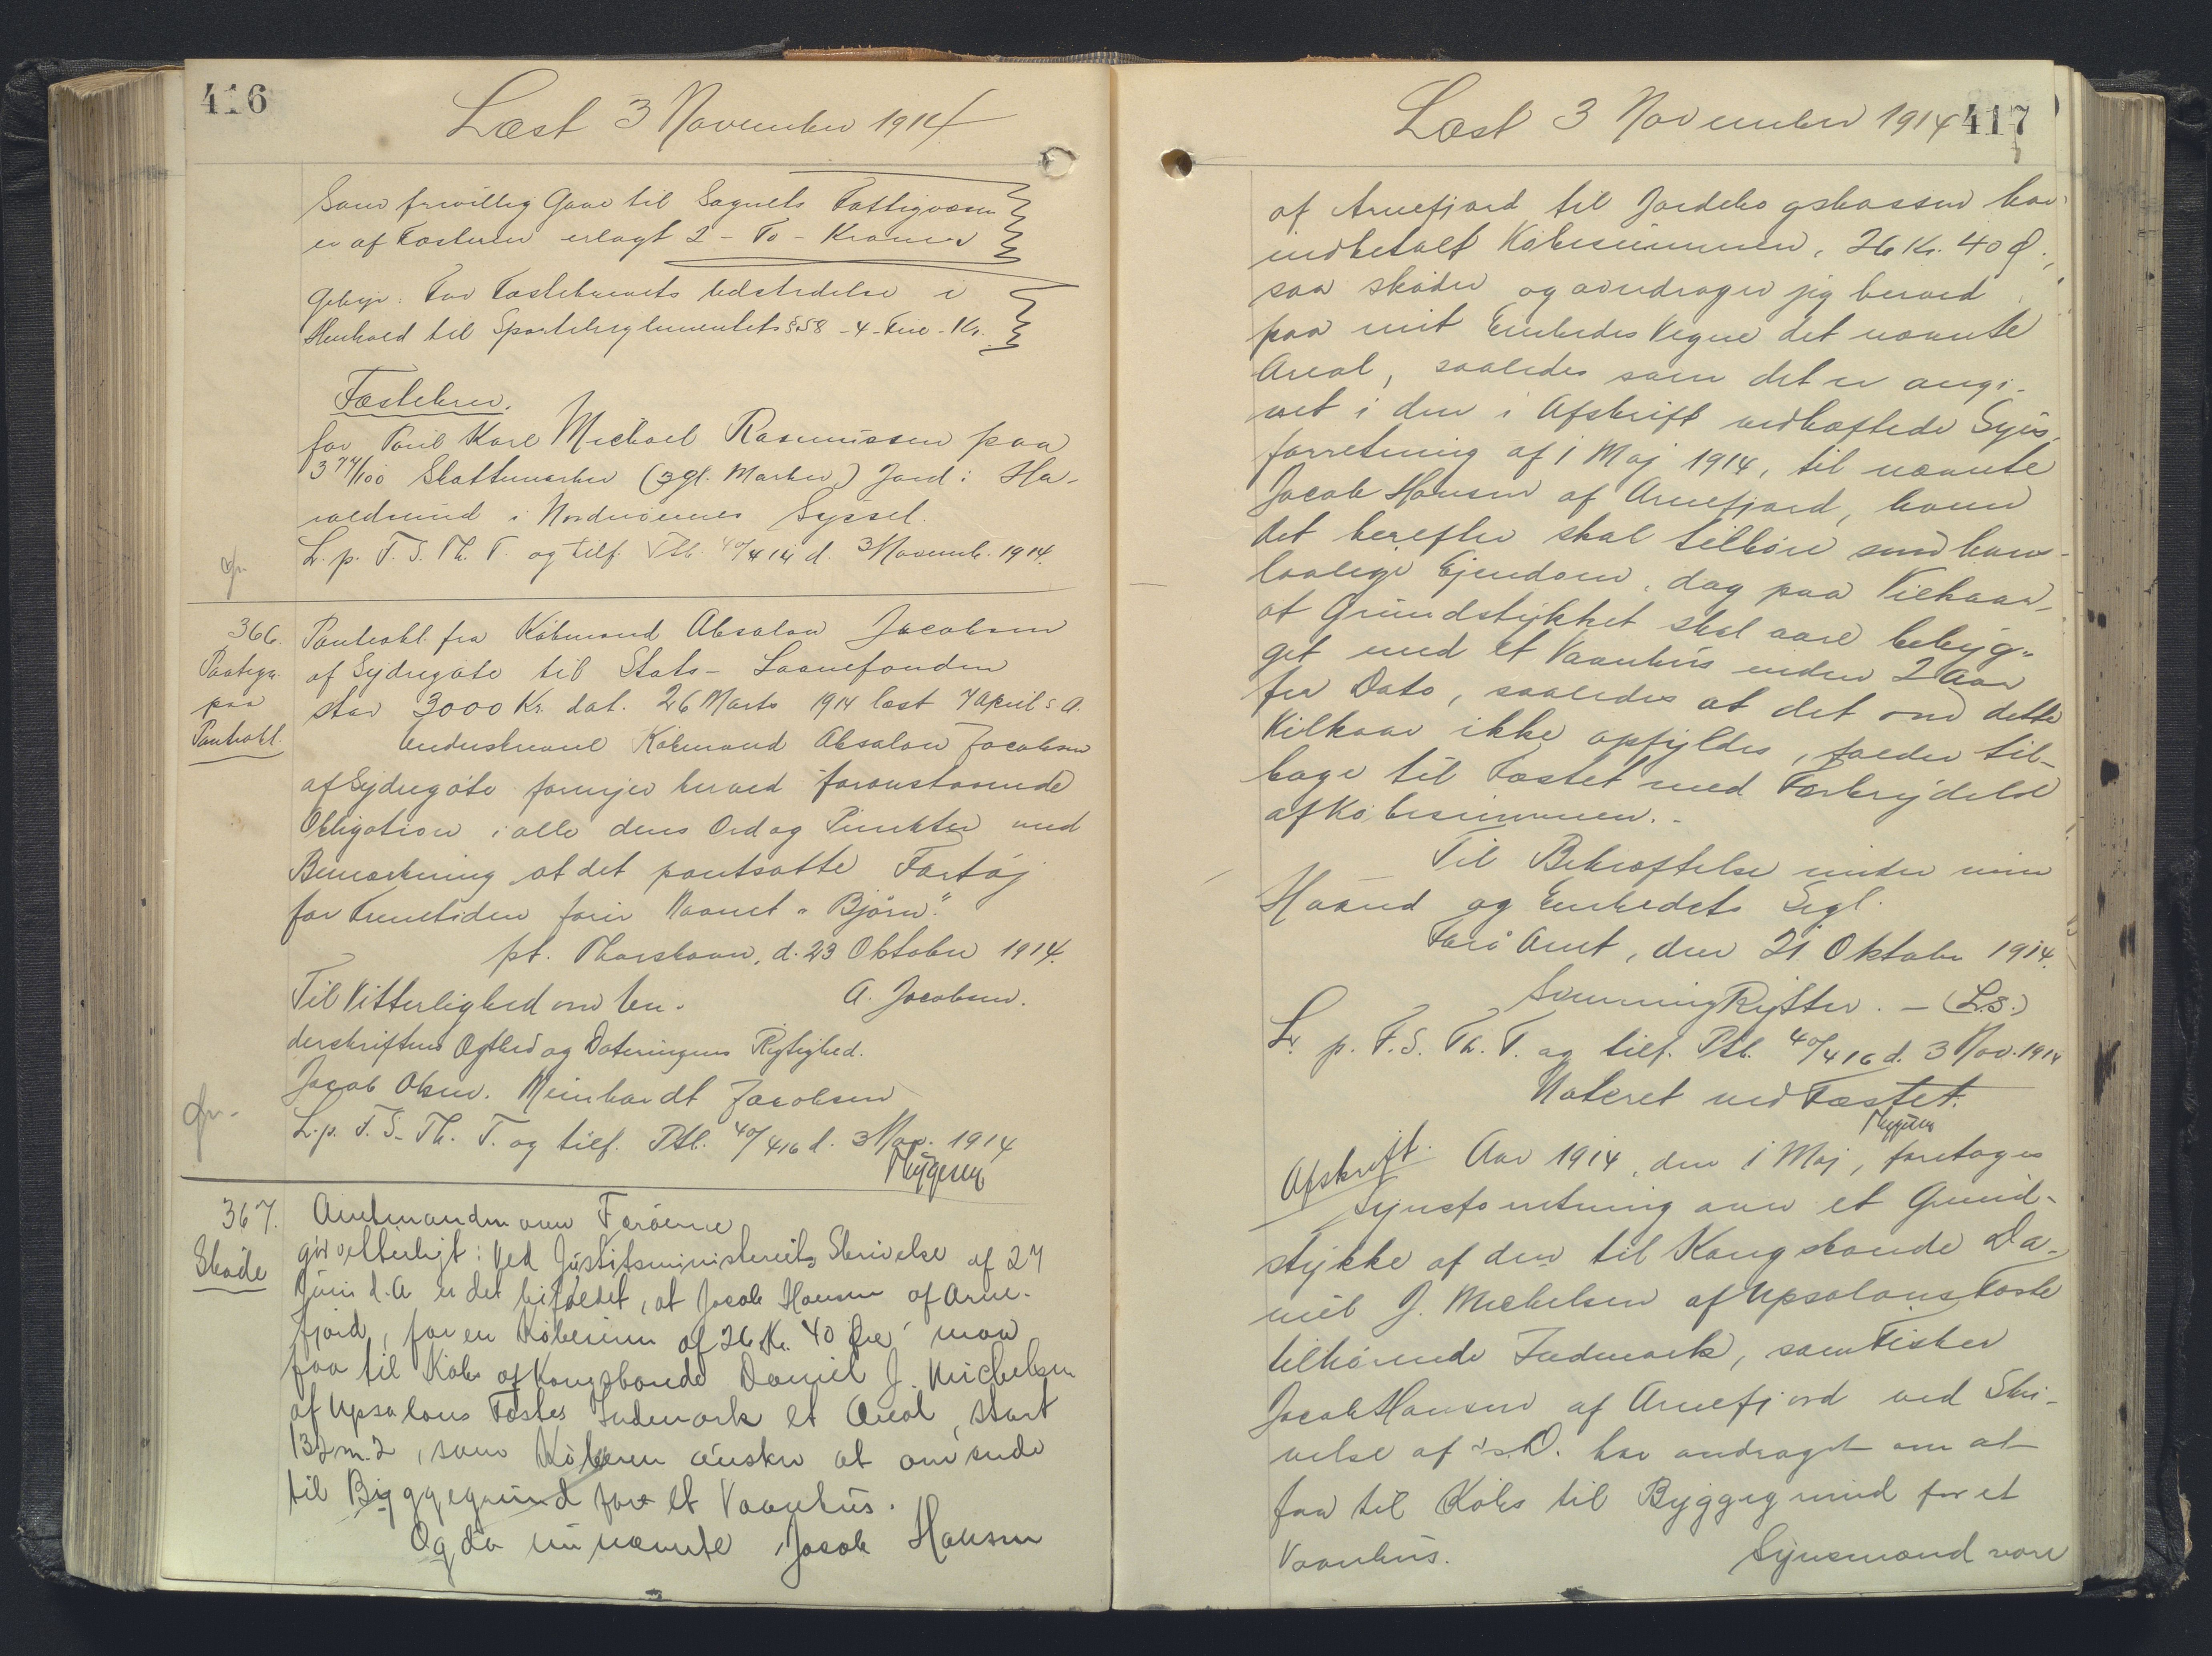 416
Læst 3 November 1914
Som frivillig Gave til Sognets Fattigvæsen
er af Fæsteren erlagt 2 - To - Kroner
Gebyr: For Fæstebrevets Udstedelse i
Henhold til Sportelreglementets § 58 - 4 - Fire - Kr.
Fæstebrev.
for Poul Karl Michael Rasmussen paa
3 77/100 Skattemarker (3 gl. Marker) Jord i Ha-
raldsund i Norderøernes Syssel.
L. p. F. S. Th. T. og tilf. Ptb. 40/414 d. 3 Novemb. 1914.
366.
Paategn.
paa
Pantobl.
Pantobl. fra Købmand Absalon Jacobsen
af Sydregøte til Stats-Laanefonden
stor 3000 Kr. dat. 26 Marts 1914 læst 7 April s. A.
Underskrevne Købmand Absalon Jacobsen
af Sydregøte fornyer herved foranstaaende
Obligation i alle dens Ord og Punkter med
Bemærkning at det pantsatte Fartøj
for Fremtiden fører Navnet "Bjørn".
pt. Thorshavn, d. 23 Oktober 1914.
Til Vitterlighed om Un- A. Jacobsen.
derskriftens Ægthed og Dateringens Rigtighed.
Jacob Olsen. Meinhardt Jacobsen
L. p. F. S. Th. T. og tilf. Ptb. 40/416 d. 3 Nov. 1914
Thygesen
367.
Skøde
Amtmanden over Færøerne
gør vitterligt: Ved Justitsministeriets Skrivelse af 27
Juni d. A er det bifaldet, at Jacob Hansen af Arne-
fjord, for en Købesum af 26 Kr. 40 Øre maa
faa til Købs af Kongsbonde Daniel J. Michelsen
af Upsalons Fæstes Indmark et Areal, stort
132 m.2, som Køberen ønsker at anvende
til Byggegrund for et Vaanhus.
Og da nu nævnte Jacob Hansen
Læst 3 November 1914
417
af Arnefjord til Jordebogskassen har
indbetalt Købesummen, 26 Kr. 40 Ø.,
saa skøder og overdrager jeg herved
paa mit Embedes Vegne det nævnte
Areal, saaledes som det er angi-
vet i den i Afskrift vedhæftede Syns-
forretning af 1 Maj 1914, til nævnte
Jacob Hansen af Arnefjord, hvem
det herefter skal tilhøre som hans
lovlige Ejendom, dog paa Vilkaar,
at Grundstykket skal være bebyg-
get med et Vaanhus inden 2 Aar
fra Dato, saaledes at det om dette
Vilkaar ikke opfyldes, falder til-
bage til Fæstet med Forbrydelse
af Købesummen.
Til Bekræftelse under min
Haand og Embedets Segl.
Færø Amt, den 21 Oktober 1914.
Svenning Rytter. - (L.S.)
L. p. F. S. Th. T. og tilf. Ptb. 40/416 d. 3 Nov. 1914
Noteret ved Fæstet.
Thygesen
Afskrift. Aar 1914, den 1 Maj, foretages
Synsforretning over et Grund-
stykke af den til Kongsbonde Da-
niel J. Michelsen af Upsalons Fæste
tilhørende Indmark, som Fisker
Jacob Hansen af Arnefjord ved Skri-
velse af s. D. har andraget om at
faa til Købs til Byggegrund for et
Vaanhus. Synsmænd vare